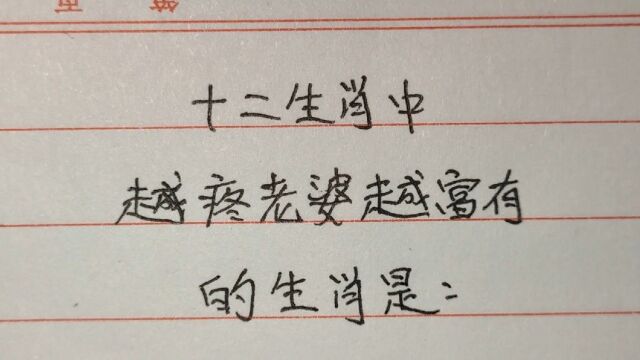 十二生肖中
越疼老婆越富有
的生肖是：